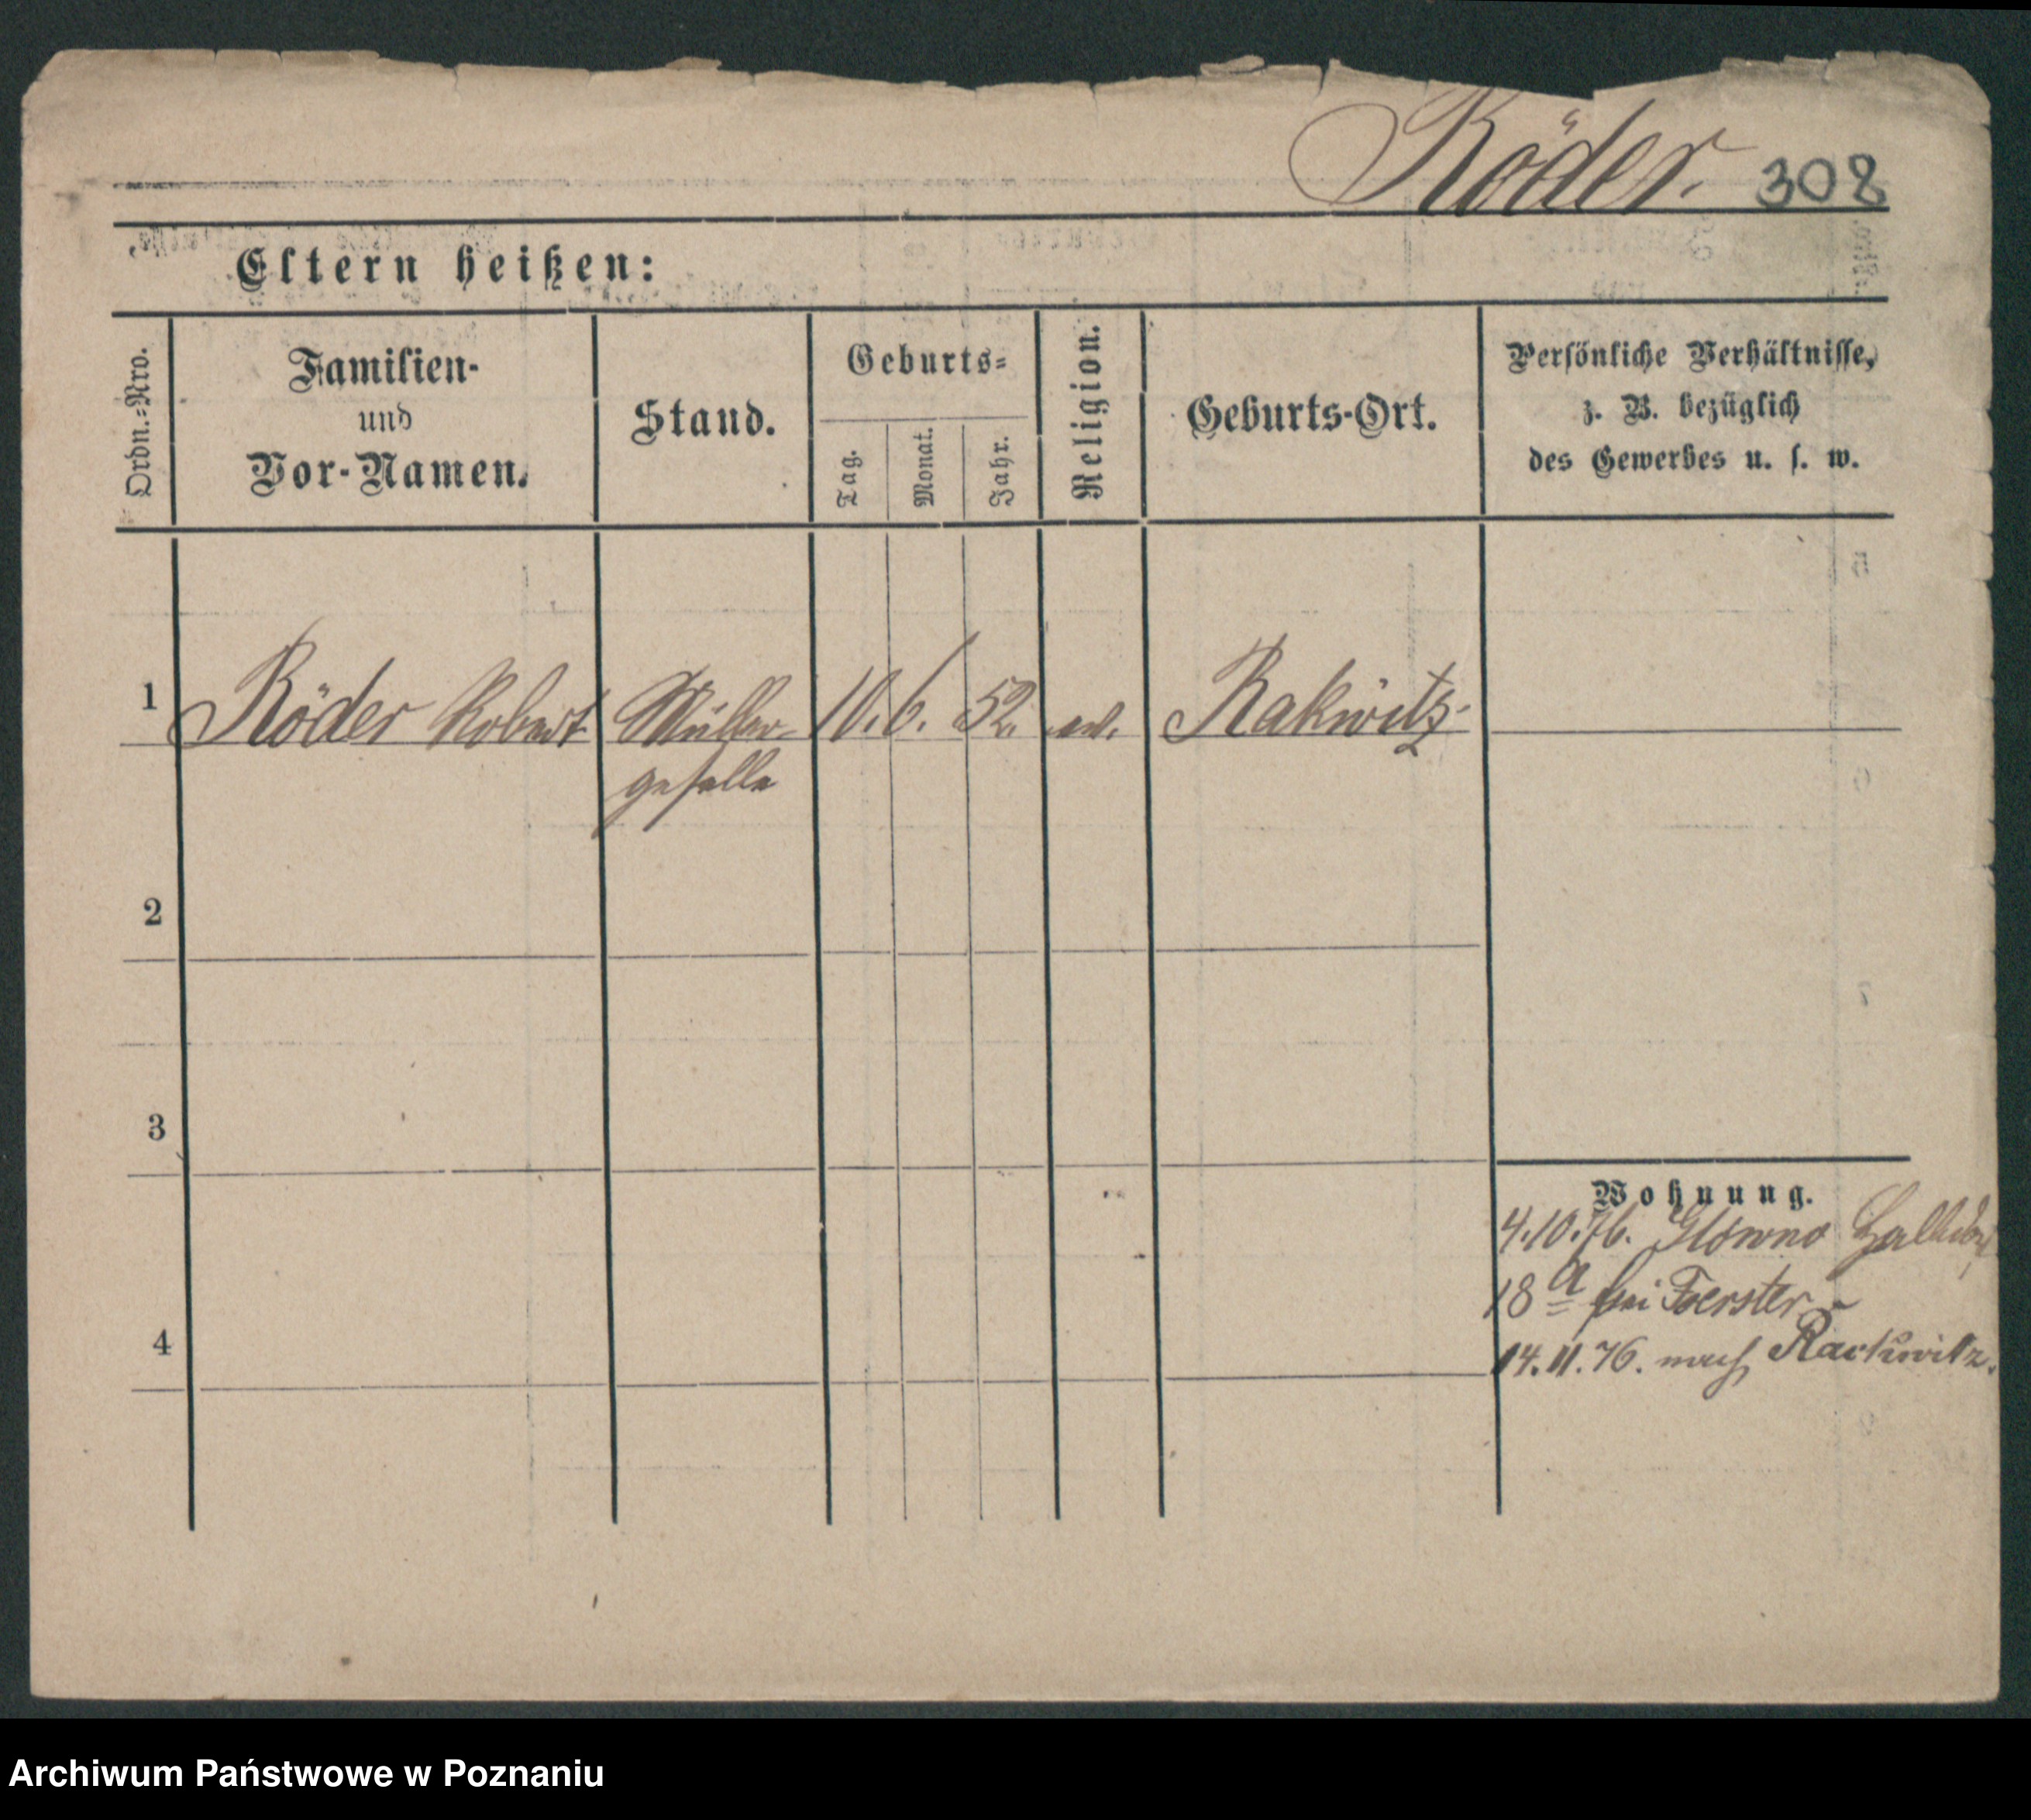 Röder. 308
Eltern heißen:
Ordn.=Nro.
Familien-
und
Vor-Namen.
Stand.
Geburts=
Tag.
Monat.
Jahr.
Religion.
Geburts-Ort.
Persönliche Verhältnisse,
z. B. bezüglich
des Gewerbes u. s. w.
1 Röder Robert Müller- 10. 6. 52. ev. Rakwitz.
geselle
2
3
Wohnung.
4.10.76. Glowno
18 a bei Foerster -
4 14.11.76. nach Rackwitz.
Archiwum Państwowe w Poznaniu